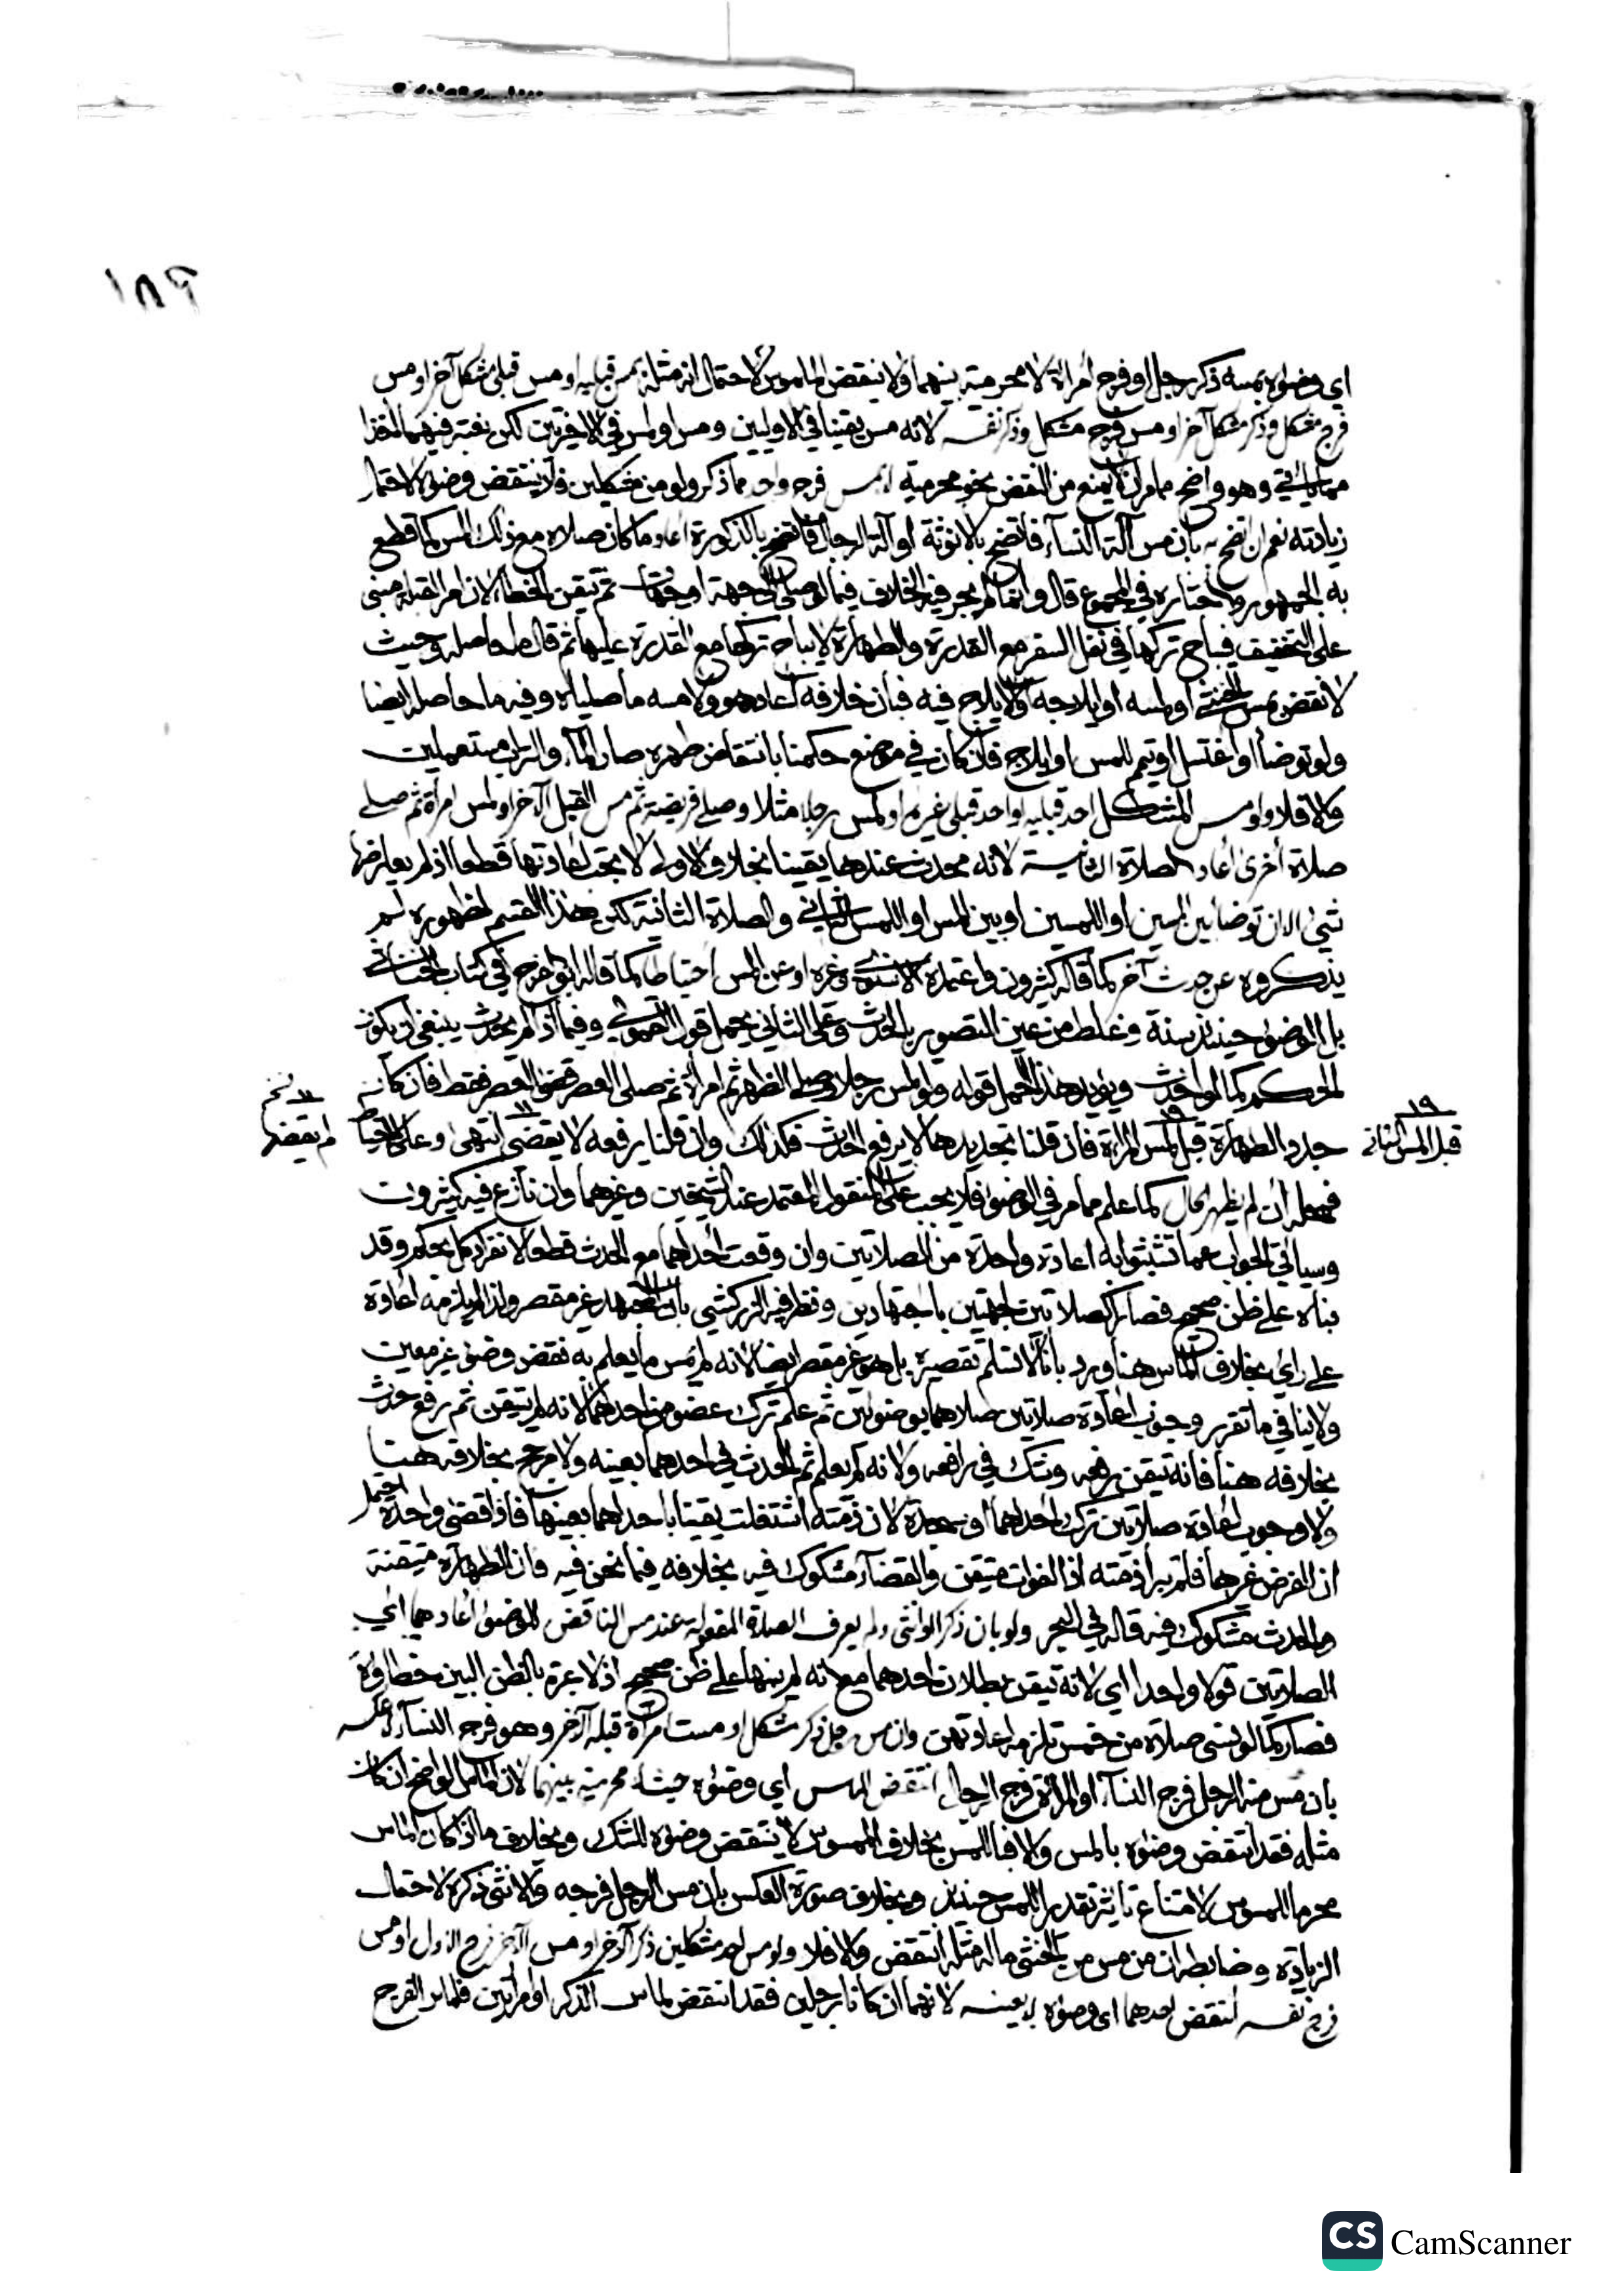 ١٨٩
اي وضؤه بمسه ذكر رجل او فرج امراة لا محرمية بينهما ولا ينقض الملموس لاحتمال انه مثله بمس قبليه او مس قبلي مشكل آخر او مس
فرج مشكل وذكر مشكل آخر او مس فرج مشكل وذكر نفسه لانه مس يقينا في الاوليين ومس او لمس في الاخيرتين لكن يعتبر فيهما اخذا
مما ياتي وهو واضح مما مر ان لا يمنع من النقض نحو محرمية لا بمس فرج واحد مما ذكر ولو من مشكلين فلا ينتقض وضؤه لاحتمال
زيادته نعم ان اتضح به بان مس آلة النساء فاتضح بالانوثة او آلة الرجال فاتضح بالذكورة اعاد ما كان صلاه مع ذلك المس كما قطع
به الجمهور واختاره في المجموع قال وانما لم يجر فيه الخلاف فيما لو صلى الى جهة او جهات ثم تيقن الخطا لان امر القبلة مبني
على التخفيف فيباح تركها في نفل السفر مع القدرة والطهارة لا يباح تركها مع القدرة عليها ثم قال ما حاصله وحيث
لا نقض بمس الخنثى او لمسه او ايلاجه او الايلاج فيه فبان خلافه اعاد هو ولامسه ما صلياه وفيه ما حاصله ايضا
ولو توضأ او اغتسل او تيمم للمس او ايلاج فان كان في موضع حكمنا بانتقاض طهره صار الماء والتراب مستعملين
والا فلا ولو مس المشكل احد قبليه او احد قبلي غيره او لمس رجلا مثلا وصلى فريضة ثم مس القبل الآخر او لمس امراة ثم صلى
صلاة أخرى أعاد الصلاة الثانية لانه محدث عندها يقينا بخلاف الاولى لا تجب اعادتها قطعا اذ لم يعارضها
شيء الا ان توضا بين المسين او اللمسين او بين المس او اللمس الثاني والصلاة الثانية لكن هذا القسم لظهوره لم
يذكروه عن حدث آخر كما قاله كثيرون واعتمده الاسنوي وغيره او عن المس احتياطا كما قاله ابو الفرج في كتاب الخناثى
بل الوضوء حينئذ سنة وغلط من عين التصوير بالحدث وعلى الثاني يحمل قول الحموي وفيما اذا لم يحدث ينبغي ان يكون
الحكم كما لو احدث ويؤيد هذا الحمل قوله ولو لمس رجلا وصلى الظهر ثم امراة ثم صلى العصر قضى العصر فقط فان كان
جدد الطهارة قبل لمس المراة فان قلنا تجديدها لا يرفع الحدث فكذلك وان قلنا يرفعه لا يقضي انتهى وعلى الاحتياط
قبل المس الثاني
لم يقضها
فمحله ان لم يظهر الحال كما علم مما مر في الوضوء فلا يجب على المنقول المعتمد عند الشيخين وغيرهما وان نازع فيه كثيرون
وسياتي الجواب عما تشبثوا به اعادة واحدة من الصلاتين وان وقعت احداهما مع الحدث قطعا لانفراد كل بحكم وقد
بناه على ظن صحيح فصار كصلاتين لجهتين باجتهادين ونظر فيه الزركشي بان المجتهد غير مقصر ولذا لم يلزمه اعادة
على رأي بخلاف الماس هنا ويرد بانا لا نسلم تقصيره بل هو غير مقصر ايضا لانه لم يمس ما يعلم به نقض وضوء غير معين
ولا ينافي ما تقرر وجوب اعادة صلاتين صلاهما بوضوئين ثم علم ترك عضو من احدهما لانه لم يتيقن ثم رفع حدث
بخلافه هنا فانه تيقن رفعه وشك في رافعه ولانه لم يعلم ثم الحدث في احدهما بعينه ولا مرجح بخلافه هنا
ولا وجوب اعادة صلاتين ترك احداهما او سجدة لان ذمته اشتغلت يقينا باحداهما بعينها فاذا قضى واحدة احتمل
ان الفرض غيرها فلم تبرأ ذمته اذ الفوات متيقن والقضاء مشكوك فيه بخلافه فيما نحن فيه فان الطهارة متيقنة
والحدث مشكوك فيه قاله في البحر ولو بان ذكرا او انثى ولم يعرف الصلاة المفعولة عند مس الناقض للوضوء أعادهما اي
الصلاتين قولا واحدا اي لانه تيقن بطلان احدهما مع انه لم يبنها على ظن صحيح اذ لا عبرة بالظن البين خطاؤه
فصار كما لو نسي صلاة من خمس تلزمه اعادتهن وان مس رجل ذكر مشكل او مست امراة قبله الآخر وهو فرج النساء لا عكسه
بان مس منه الرجل فرج النساء او المراة فرج الرجال انتقض الماس اي وضؤه حيث لا محرمية بينهما لان المشكل الواضح ان كان
مثله فقد انتقض وضؤه بالمس والا فباللمس بخلاف الممسوس لا ينتقض وضؤه للشك وبخلاف ما اذا كان الماس
محرما للممسوس لامتناع تاثير تقدير اللمس حينئذ وبخلاف صورة العكس بان مس الرجل فرجه والانثى ذكره لاحتمال
الزيادة وضابطه ان من مس من الخنثى ما له مثله انتقض والا فلا ولو مس احد مشكلين ذكر آخر او مس الآخر فرج الاول او مس
فرج نفسه انتقض احدهما اي وضؤه لا بعينه لانهما ان كانا رجلين فقد انتقض لماس الذكر او امراتين فلماس الفرج
CS CamScanner